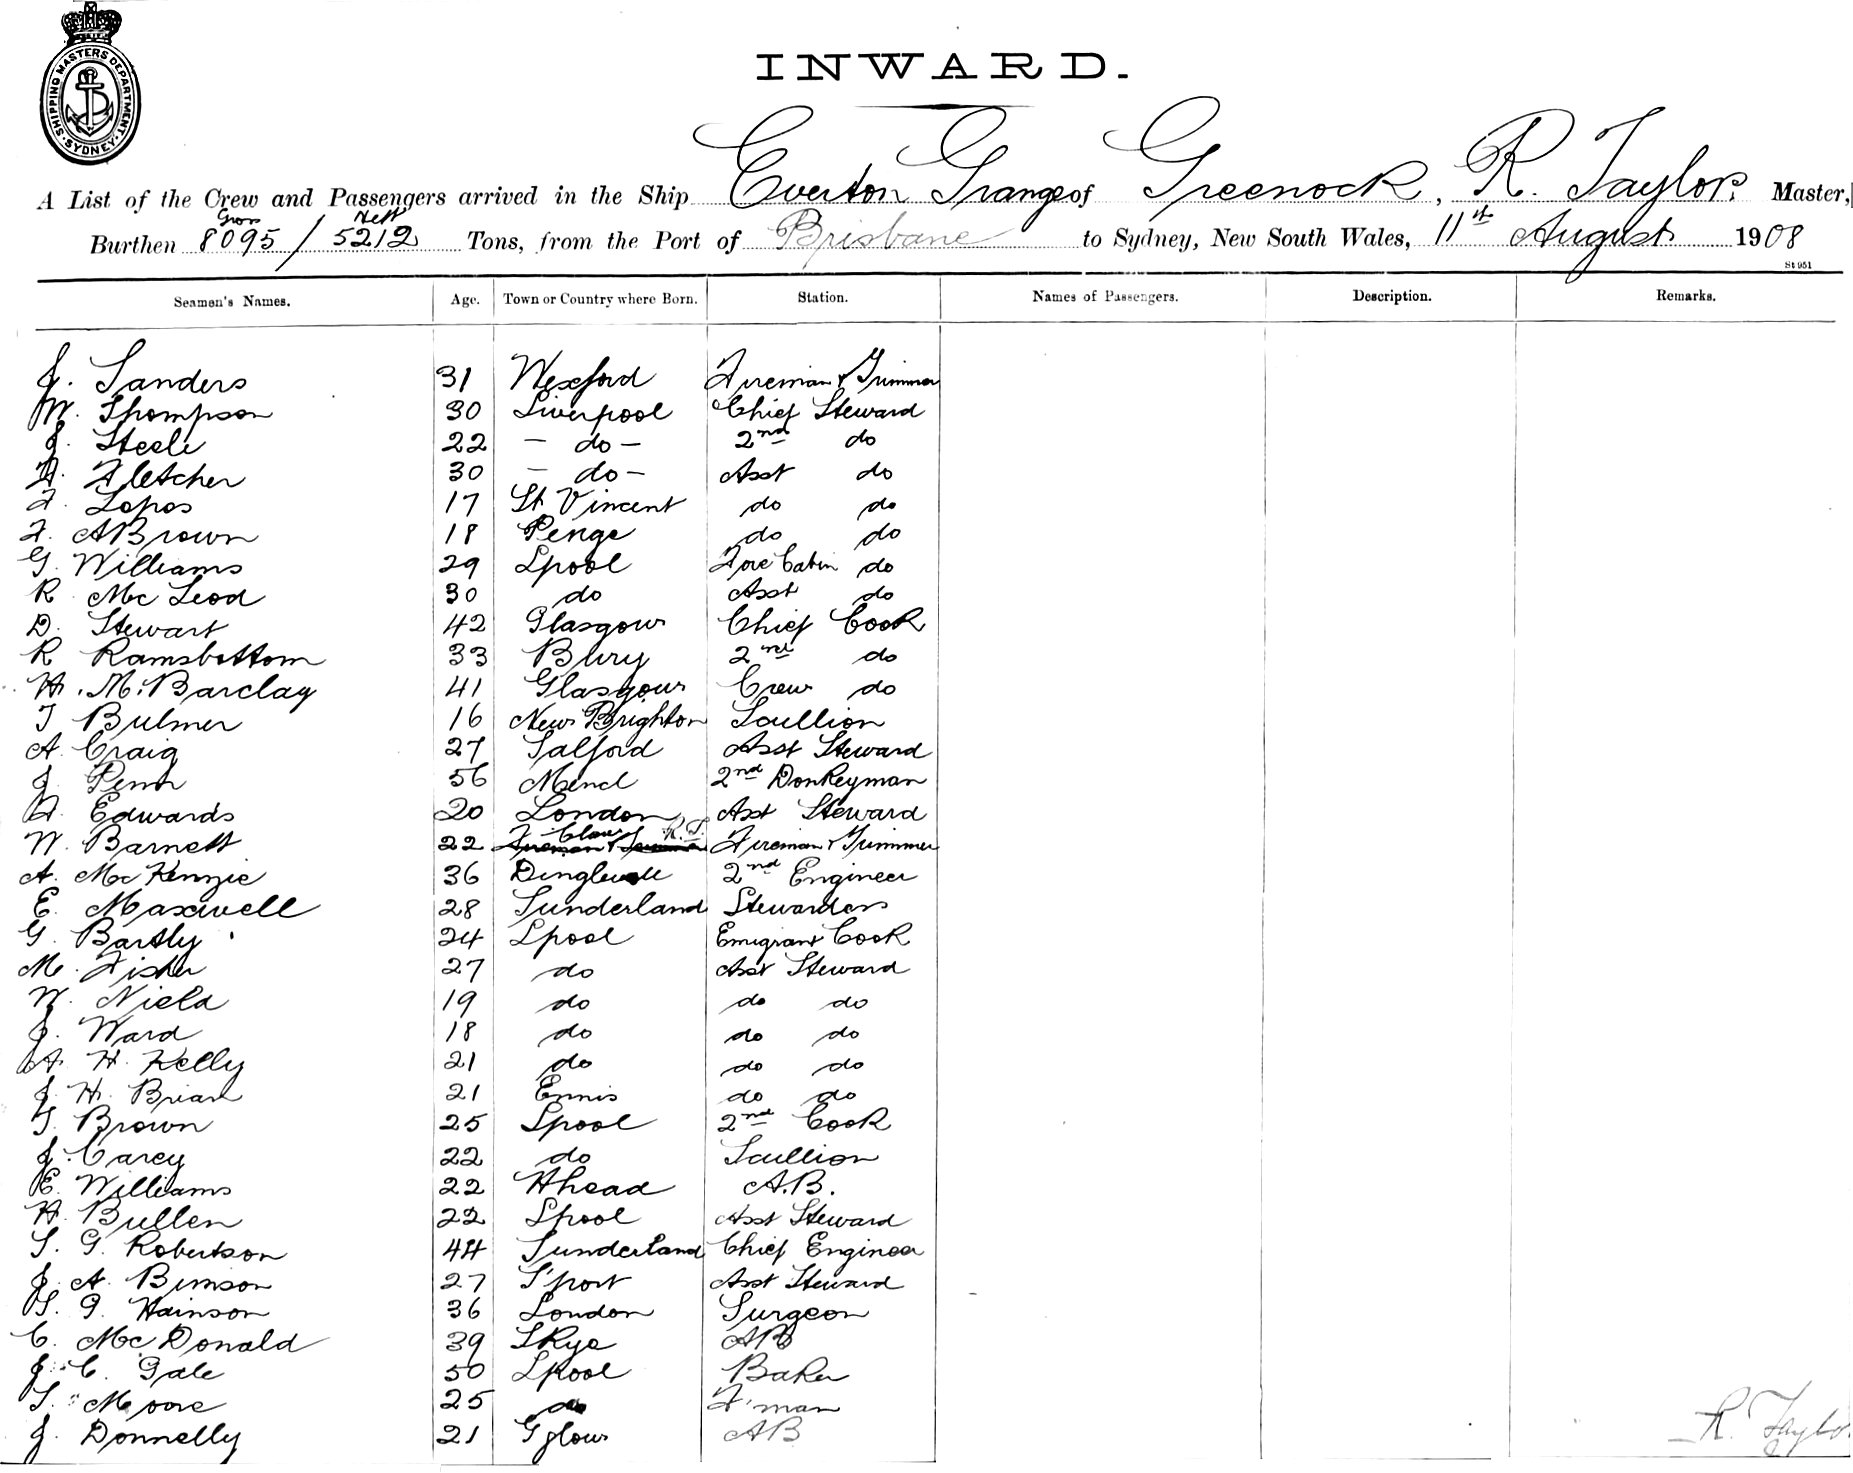 SHIPPING MASTERS DEPARTMENT. SYDNEY.
INWARD.
A List of the Crew and Passengers arrived in the Ship Everton Grange of Greenock, R. Taylor, Master,
Gross Nett
Burthen 8095 / 5212 Tons, from the Port of Brisbane to Sydney, New South Wales, 11th August 1908
St 951
Seamen's Names. Age. Town or Country where Born. Station. Names of Passengers. Description. Remarks.
J. Sanders 31 Wexford Fireman & Trimmer
W. Thompson 30 Liverpool Chief Steward
J. Steele 22 - do - 2nd do
A. Fletcher 30 - do - Asst do
F. Lopos 17 St Vincent do do
F. A Brown 18 Penge do do
G. Williams 29 Lpool Fore Cabin do
R McLeod 30 do Asst do
D. Stewart 42 Glasgow Chief Cook
R Ramsbottom 33 Bury 2nd do
H. M. Barclay 41 Glasgow Crew do
T Bulmer 16 New Brighton Scullion
A. Craig 27 Salford Asst Steward
J. Penn 56 2nd Donkeyman
A. Edwards 20 London Asst Steward
W. Barnett 22 R.T. Fireman & Trimmer
A. McKenzie 36 2nd Engineer
E. Maxwell 28 Sunderland Stewardess
G. Bartly 24 Lpool Emigrant Cook
M. Fisher 27 do Asst Steward
W. Nield 19 do do do
J. Ward 18 do do do
A. H. Kelly 21 do do do
J. H. Brian 21 Ennis do do
T. Brown 25 Lpool 2nd Cook
J. Carey 22 do Scullion
E. Williams 22 Hhead A.B.
H. Bullen 22 Lpool Asst Steward
S. G. Robertson 44 Sunderland Chief Engineer
J. A. Bimson 27 S'port Asst Steward
S. G. Hainson 36 London Surgeon
C. McDonald 39 Skye AB
J. C. Gale 50 Lpool Baker
S. Moore 25 do F'man
J. Donnelly 21 Gglow AB
R. Taylor